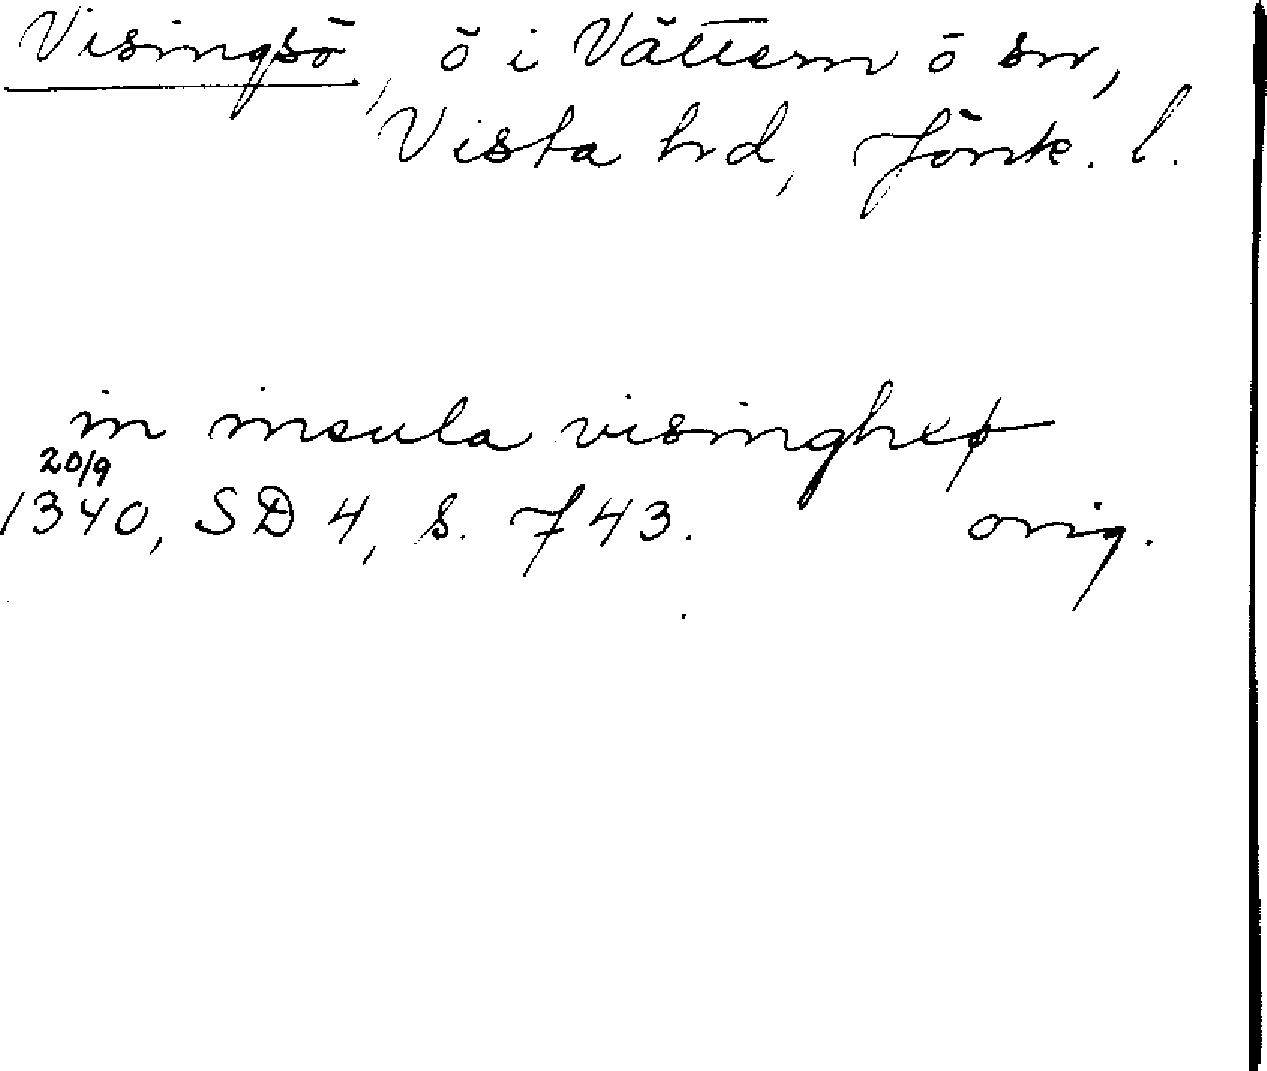 Visingsö, ö i Vättern ö sn,
Vista hd, Jönk. l.
in insula visingheø
20/9
1340, SD 4, s. 743. orig.